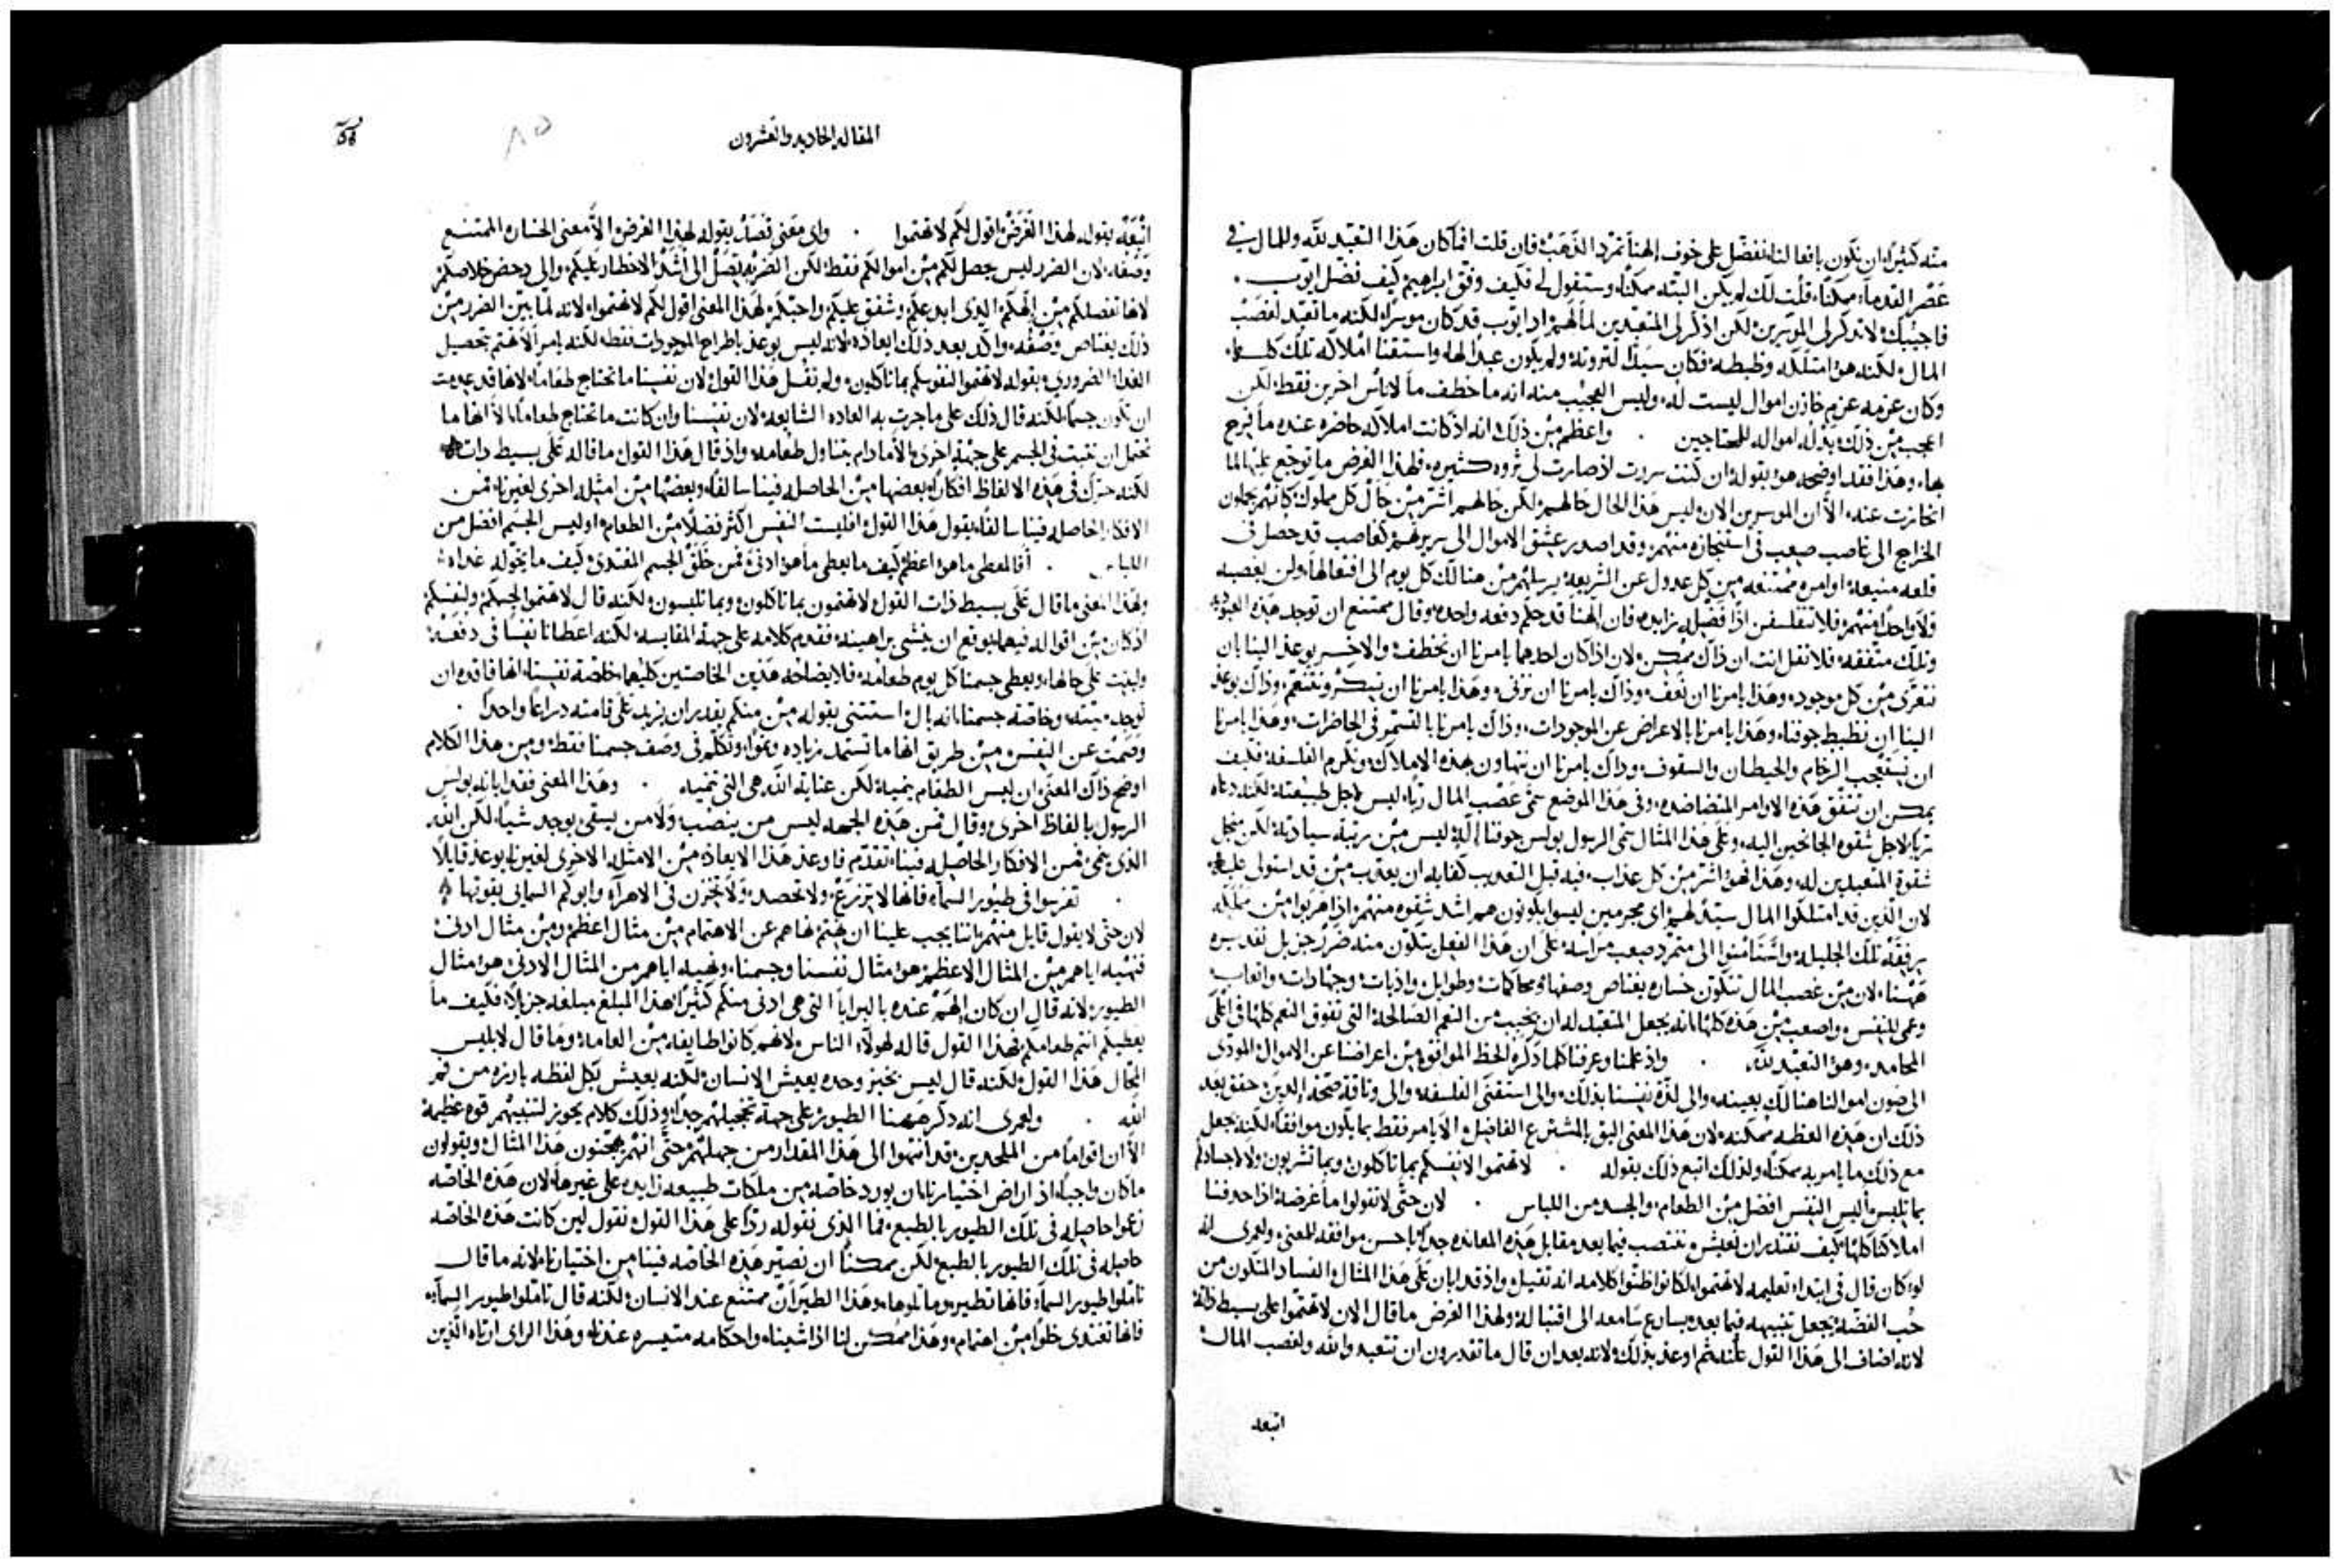 منه كثيرًا ان نكون بافعالنا نفضل على خوف الهنا تمرد الذهب فان قلت افما كان هذا التعبد لله وللمال في
عصر القدماء ممكنًا قلت لك لم يكن البته ممكنًا وستقول لي فكيف وفق ابراهيم كيف فضل ايوب
فاجيبك لا تذكر لي الموسرين لكن اذكر لي المتعبدين لمالهم اذ ايوب قد كان موسرًا لكنه ما تعبد لغصب
المال لكنه هو امتلكه وظبطه فكان سيدًا لثروته ولم يكون عبدًا لها واستقنا املاكه تلك كلها
وكان عزمه عزم خازن اموال ليست له وليس العجيب منه انه ما خطف ما لاناس اخرين فقط لكن
اعجب من ذلك بذله امواله للمحتاجين . واعظم من ذلك انه اذ كانت املاكه حاضره عنده ما فرح
بها وهذا فقد اوضحه هو بقوله ان كنت سررت اذ صارت لي ثروه كثيره فلهذا الغرض ما توجع عليها لما
انحازت عنه الا ان الموسرين الان ليس هذا الحال حالهم لكن حالهم اشر من حال كل مملوك كانهم يحملون
الخراج الى غاصب صعب في استنجازه منهم وقد اصدر عشق الاموال الى سريرتهم كغاصب قد حصل في
قلعه منيعه اوامره ممتنعه من كل عدول عن الشريعه يرسلهم من هنالك كل يوم الى افتعالها ولن يعصيه
ولا واحدًا منهم فلا تتفلسفن اذًا فضله زايده فان الهنا قد حكم دفعه واحده وقال ممتنع ان توجد هذه العبوديه
وتلك متفقه فلا تقل انت ان ذاك ممكن لان اذا كان احدهما يامرنا ان نخطف والاخر يوعذ الينا بان
نتعرى من كل موجود وهذا يامرنا ان نعف وذاك يامرنا ان نزنى وهذا يامرنا ان نسكر ونتنعم وذاك يوعذ
الينا ان نظبط جوفنا وهذا يامرنا بالاعراض عن الموجودات وذاك يامرنا بالتسمر في الحاضرات وهذا يامرنا
ان نستعجب الرخام والحيطان والسقوف وذاك يامرنا ان نتهاون بهذه الاملاك ونكرم الفلسفه فكيف
يمكن ان تتفق هذه الاوامر المتضاده وفي هذا الموضع سمى غصب المال ربًا ليس لاجل طبيعته لكنه دعاه
ربًا لاجل شقوه الجانحين اليه وعلى هذا المثال سمى الرسول بولس جوفنا الهًا ليس من رتبة سيادته لكن من اجل
شقوة المتعبدين له وهذا فهو اشر من كل عذاب فيه قبل التعذيب كفايه ان يعذب من قد استولى عليه
لان الذين قد امتلكوا المال سيدًا لهم اي مجرمين ليسوا يكونون هم اشد شقوه منهم اذا هربوا من مملكه
برفقه تلك الجليله واستامنوا الى متمرد صعب مراسه على ان هذا الفعل يتكون منه ضرر جزيل تقديره
ههنا لان من غصب المال تتكون خساره يغتاص وصفها ومحاكمات وطوايل واذيات وجهادات واتعاب
وعمى للنفس واصعب من هذه كلها انه يجعل المتعبد له ان يخيب من النعم الصالحة التي تفوق النعم كلها في اعلى
المحامد وهو التعبد لله . واذ علمنا وعرفنا كلما ذكره الحظ الموافق من اعراضنا عن الاموال المودى
الى صون اموالنا هنالك بعينه والى لذة نفسنا بذلك والى استقنى الفلسفه والى وثاقة صحة الدين حقق بعد
ذلك ان هذه العظه ممكنه لان هذا المعنى اليق بالمشترع الفاضل الا يامر فقط بما يكون موافقًا لكنه يجعل
مع ذلك ما يامر به ممكنًا ولذلك اتبع ذلك بقوله . لا تهتموا لانفسكم بما تاكلون وبما تشربون ولا لاجسادكم
بما تلبس اليس النفس افضل من الطعام والجسد من اللباس . لان حتى لا تقولوا ما غرضه اذا حذفنا
املاكنا كلها كيف نقتدر ان نعيش وتنتصب فيما بعد مقابل هذه المعانده جدًا باحسن موافقه للمعنى ولعمري انه
لو كان قال في ابتداء تعليمه لا تهتموا لكانوا ظنوا كلامه انه ثقيل واذ قد ابان على هذا المثال الفساد المتكون من
حب الفضة يجعل تنبيهه فيما بعد يسارع سامعه الى اقتباله ولهذا الغرض ما قال الان لا تهتموا على بسيط ذاته
لانه اضاف الى هذا القول علته ثم اوعذ بذلك ولانه بعد ان قال ما تقدرون ان تتعبدوا لله ولغصب المال
اتبعه
المقاله الحاديه والعشرون
٨٥
اتبعه بقوله لهذا الغرض اقول لكم لا تهتموا . واي معنى قصد بقوله لهذا الغرض الا معنى الخسارة الممتنع
وصفه لان الضرر ليس يحصل لكم من اموالكم فقط لكن الضربه تصل الى اشد الاخطار عليكم والى دحض خلاصكم
لانها تفصلكم من الهكم الذي ابدعكم وشفق عليكم واحبكم لهذا المعنى اقول لكم لا تهتموا لانه لما بين الضرر من
ذلك يغتاص وصفه واكد بعد ذلك ايعاذه لانه ليس يوعذ باطراح الموجودات فقط لكنه يامر الا نهتم بتحصيل
الغذا الضروري بقوله لا تهتموا لنفوسكم بما تاكلون ولم نقل هذا القول لان نفسنا ما تحتاج طعامًا لانها قد عدمت
ان تكون جسمًا لكنه قال ذلك على ما جرت به العاده الشايعه لان نفسنا وان كانت ما تحتاج طعامًا الا انها ما
تحتمل ان تثبت في الجسم على جهةٍ اخرى الا ما دام يتناول طعامه واذ قال هذا القول ما قاله على بسيط ذاته
لكنه حرك في هذه الالفاظ افكارًا بعضها من الحاصله فينا سالفًا وبعضها من امثله اخرى لغيرنا فمن
الافكار الحاصله فينا سالفًا يقول هذا القول افليست النفس اكثر فضلًا من الطعام اوليس الجسم افضل من
اللباس . افالمعطي ما هو اعظم كيف ما يعطي ما هو ادنى فمن خلق الجسم المغتذي كيف ما يخوله غذاه
ولهذا المعنى ما قال على بسيط ذات القول لا تهتمون بما تاكلون وبما تلبسون لكنه قال لا تهتموا لجسمكم ولنفسكم
اذ كان من اقواله فيهما يوقع ان ينشي براهينه فقدم كلامه على جهة المقايسه لكنه اعطانا نفسًا في دفعة
ولبثت على حالها ويعطي جسمنا كل يوم طعامه فلايضاحه هذين الخاصتين كليهما خاصة نفسنا انها فاقده ان
توجد ميته وخاصة جسمنا انه بال استثنى بقوله من منكم يقدر ان يزيد على قامته ذراعًا واحدًا .
وصمت عن النفس من طريق انها ما تستمد زياده ونموًا وتكلم في وصف جسمنا فقط ومن هذا الكلام
اوضح ذاك المعنى ان ليس الطعام ينميه لكن عناية الله هي التي تنميه . وهذا المعنى فقد ابانه بولس
الرسول بالفاظ اخرى وقال فمن هذه الجهه ليس من ينصب ولا من يسقي يوجد شيًا لكن الله
الذي ينمي فمن الافكار الحاصله فينا تقدم فاوعذ هذا الايعاذ ومن الامثله الاخرى لغيرنا يوعذ قايلًا
تفرسوا في طيور السماء فانها لا تزرع ولا تحصد ولا تخزن في الاهراء وابوكم السماني يقوتها
لان حتى لا يقول قايل منهم باننا يجب علينا ان نهتم نهاهم عن الاهتمام من مثال اعظم ومن مثال ادنى
فنهيه اياهم من المثال الاعظم هو مثال نفسنا وجسمنا ونهيه اياهم من المثال الادنى هو مثال
الطيور لانه قال ان كان الهم عنده بالبرايا التي هي ادنى منكم كثيرًا هذا المبلغ مبلغه جزيلًا فكيف ما
يعطيكم انتم طعامكم فهذا القول قاله لهولاء الناس لانهم كانوا طايفه من العامه وما قال لابليس
المحال هذا القول لكنه قال ليس بخبز وحده يعيش الانسان لكنه يعيش بكل لفظه بارزه من فم
الله . ولعمري انه ذكر ههنا الطيور على جهة تخجيلهم جدًا وذلك كلام يحوز لتنبيههم قوه عظيمة
الا ان اقوامًا من الملحدين قد انتهوا الى هذا المقدار من جهلهم حتى انهم يهجنون هذا المثال ويقولون
ما كان واجبًا اذ اراض اختيارنا ان يورد خاصه من ملكات طبيعه زايده على غيرها لان هذه الخاصه
زعموا حاصله في تلك الطيور بالطبع فما الذي نقوله ردًا على هذا القول نقول لين كانت هذه الخاصه
حاصله في تلك الطيور بالطبع لكن ممكنًا ان نصير هذه الخاصه فينا من اختيارنا لانه ما قال
تاملوا طيور السماء فانها تطير وماثلوها وهذا الطيران ممتنع عند الانسان لكنه قال تاملوا طيور السماء
فانها تغتذي خلوًا من اهتمام وهذا ممكن لنا اذا شينا واحكامه متيسره عندنا وهذا الراي ارتاه الذين